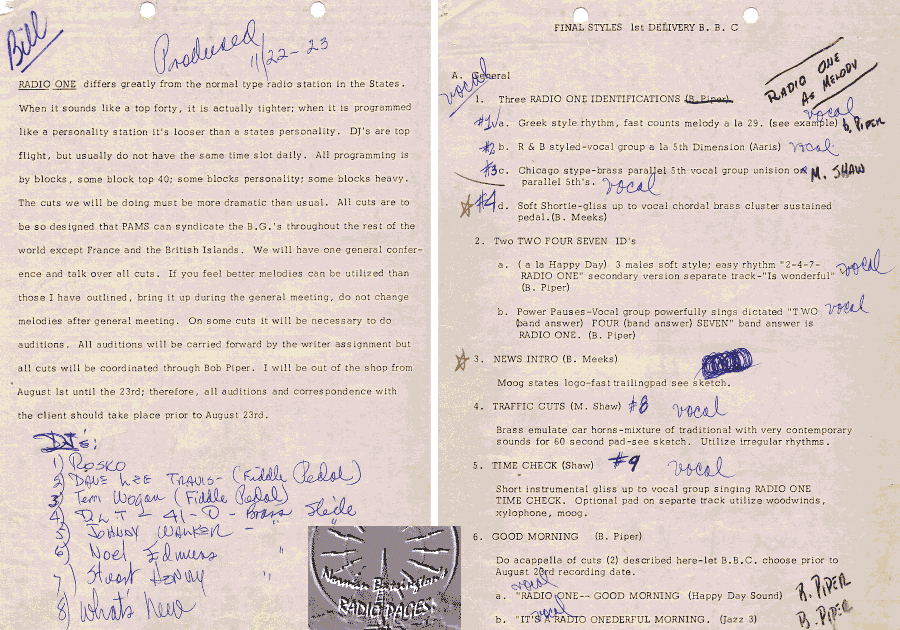 Bill
Produced
11/22-23
RADIO ONE differs greatly from the normal type radio station in the States.
When it sounds like a top forty, it is actually tighter; when it is programmed
like a personality station it's looser than a states personality. DJ's are top
flight, but usually do not have the same time slot daily. All programming is
by blocks, some block top 40; some blocks personality; some blocks heavy.
The cuts we will be doing must be more dramatic than usual. All cuts are to
be so designed that PAMS can syndicate the B.G.'s throughout the rest of the
world except France and the British Islands. We will have one general confer-
ence and talk over all cuts. If you feel better melodies can be utilized than
those I have outlined, bring it up during the general meeting, do not change
melodies after general meeting. On some cuts it will be necessary to do
auditions. All auditions will be carried forward by the writer assignment but
all cuts will be coordinated through Bob Piper. I will be out of the shop from
August 1st until the 23rd; therefore, all auditions and correspondence with
the client should take place prior to August 23rd.
DJ's:
1) ROSKO
2) DAVE LEE TRAVIS- (Fiddle Pedal)
3) Terri Wogan (Fiddle Pedal)
4) D.L.T - 41-D - Brass Slide
5) JOHNNY WALKER - "
6) Noel Edmens "
7) Stuart HENNY "
8) What's New
Norman Barrington's
RADIO PAGES!
FINAL STYLES 1st DELIVERY B. B. C
A. General
vocal
RADIO ONE
AS MELODY
1. Three RADIO ONE IDENTIFICATIONS (B. Piper)
vocal
#1 a. Greek style rhythm, fast counts melody a la 29. (see example) B. PIPER
#2 b. R & B styled-vocal group a la 5th Dimension (Aaris) vocal
#3 c. Chicago stype-brass parallel 5th vocal group unision or M. SHAW
parallel 5th's. vocal
#4 d. Soft Shortie-gliss up to vocal chordal brass cluster sustained
pedal. (B. Meeks)
2. Two TWO FOUR SEVEN ID's
a. ( a la Happy Day) 3 males soft style; easy rhythm "2-4-7- vocal
RADIO ONE" secondary version separate track-"Is wonderful"
(B. Piper)
b. Power Pauses-Vocal group powerfully sings dictated "TWO vocal
(band answer) FOUR (band answer) SEVEN" band answer is
RADIO ONE. (B. Piper)
3. NEWS INTRO (B. Meeks)
Moog states logo-fast trailingpad see sketch.
4. TRAFFIC CUTS (M. Shaw) #8 vocal
Brass emulate car horns-mixture of traditional with very contemporary
sounds for 60 second pad-see sketch. Utilize irregular rhythms.
5. TIME CHECK (Shaw) #9 vocal
Short instrumental gliss up to vocal group singing RADIO ONE
TIME CHECK. Optional pad on separte track utilize woodwinds,
xylophone, moog.
6. GOOD MORNING (B. Piper)
Do acappella of cuts (2) described here-let B.B.C. choose prior to
August 23rd recording date.
vocal
a. "RADIO ONE-- GOOD MORNING (Happy Day Sound) B. PIPER
vocal
b. "IT'S A RADIO ONEDERFUL MORNING. (Jazz 3) B. PIPER